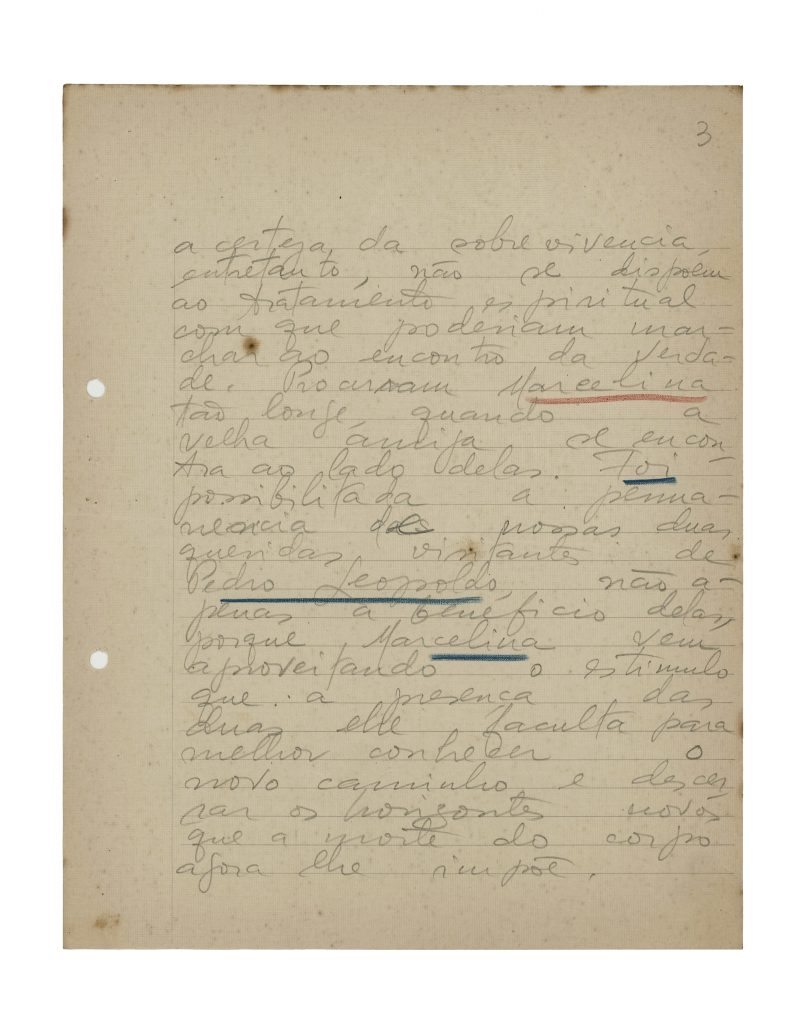 3
a certeza da sobrevivencia,
entretanto, não se dispõem
ao tratamento espiritual
com que poderiam mar-
char ao encontro da Verda-
de. Procuram Marcelina
tão longe, quando a
velha amiga se encon-
tra ao lado delas. Foi
possibilitada a perma-
nencia de nossas duas
queridas visitantes de
Pedro Leopoldo, não a-
penas a benéficio delas,
porque Marcelina vem
aproveitando o estimulo
que a presença das
duas lhe faculta para
melhor conhecer o
novo caminho e descer-
rar os horizontes novos
que a morte do corpo
agora lhe impõe.